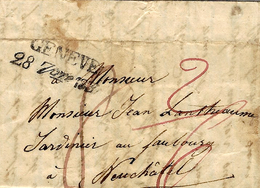 GENEVE
28
à Monsieur
Monsieur Jean
Jardinier au faubourg
à Neuchâtel